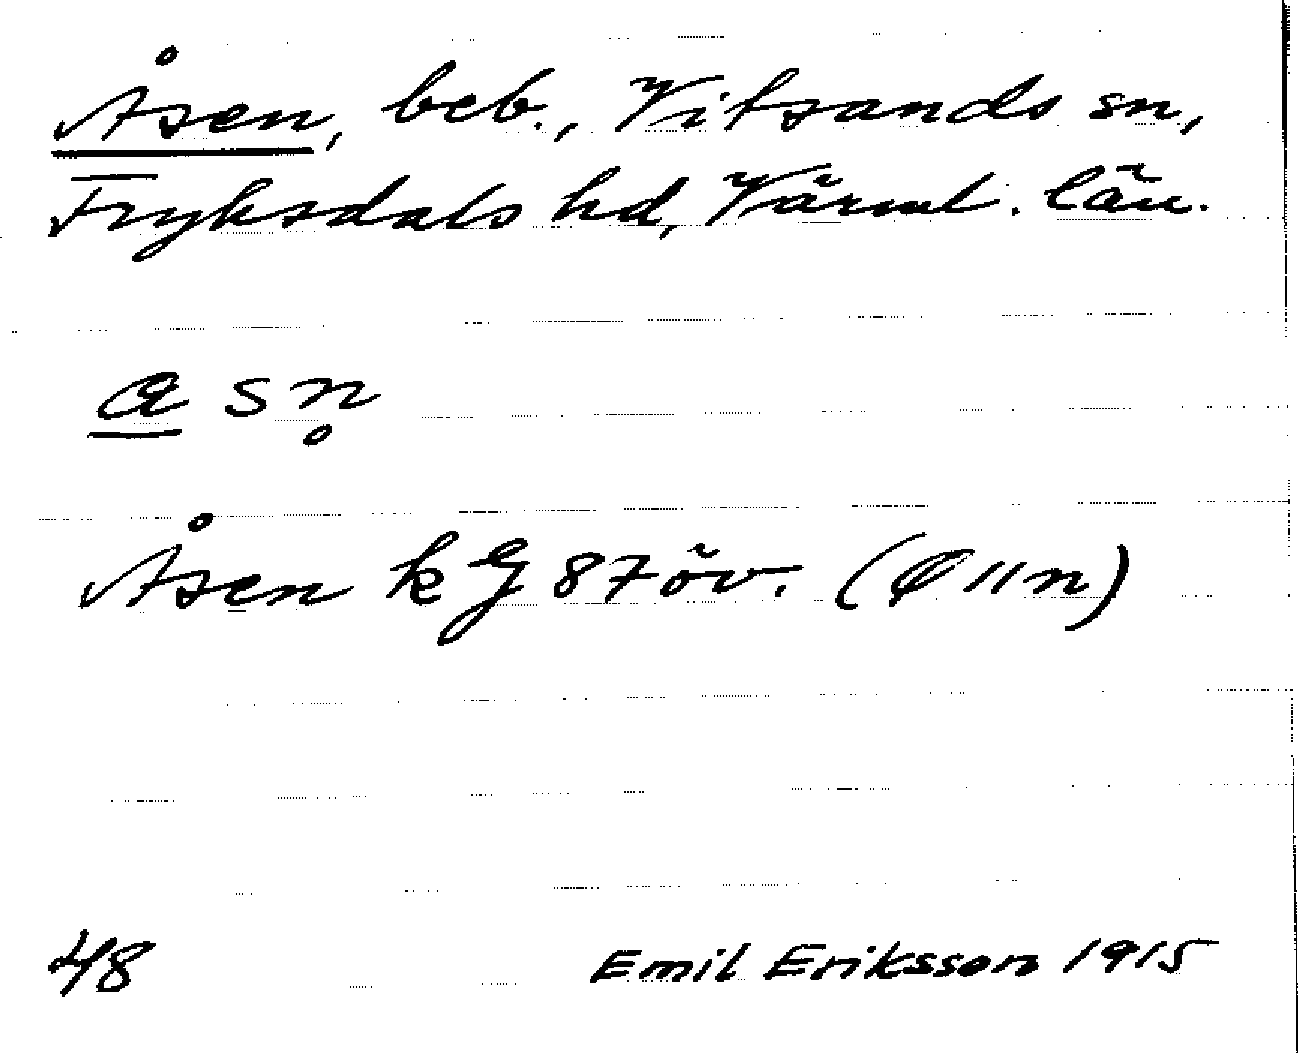 Åsen, beb., Vitsands sn,
Fryksdals hd, Värml. län.
a s n̥
Åsen k G 87 öv. (Ö 11 n)
48 Emil Eriksson 1915